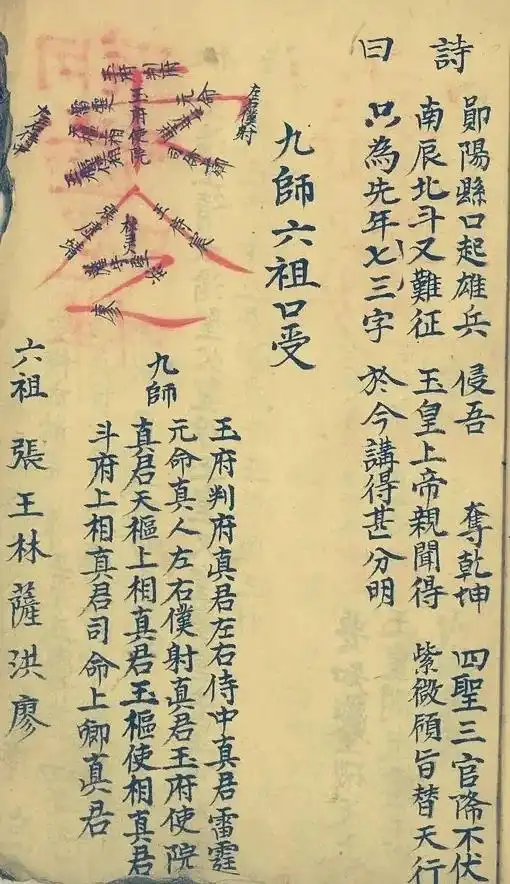 詩曰
鄖陽縣口起雄兵 侵吾 奪乾坤 四聖三官降不伏
南辰北斗又難征 玉皇上帝親聞得 紫微頒旨替天行
只為先年七三字 於今講得甚分明
九師六祖口受
九師
玉府判府真君左右侍中真君雷霆
元命真人左右僕射真君玉府使院
真君天樞上相真君玉樞使相真君
斗府上相真君司命上卿真君
六祖 張王林薩洪廖
玉府判府
玉府使院
元命
左右僕射